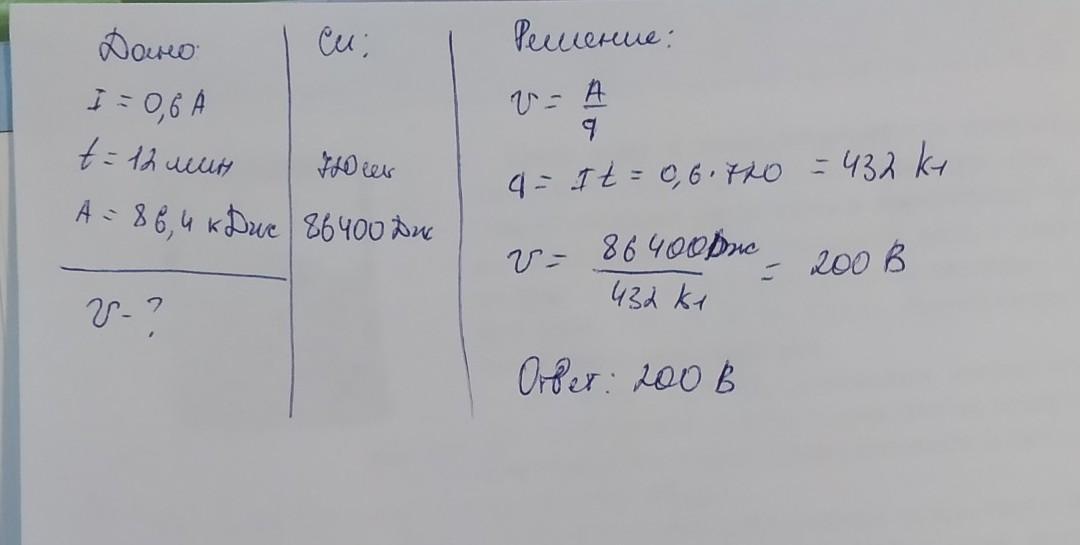 Дано:
I = 0,6 А
t = 12 мин
А = 86,4 кДж
U - ?
Си:
720 сек
86400 Дж
Решение:
U = А/q
q = It = 0,6·720 = 432 Кл
U = 86400Дж/432 Кл = 200 В
Ответ: 200 В